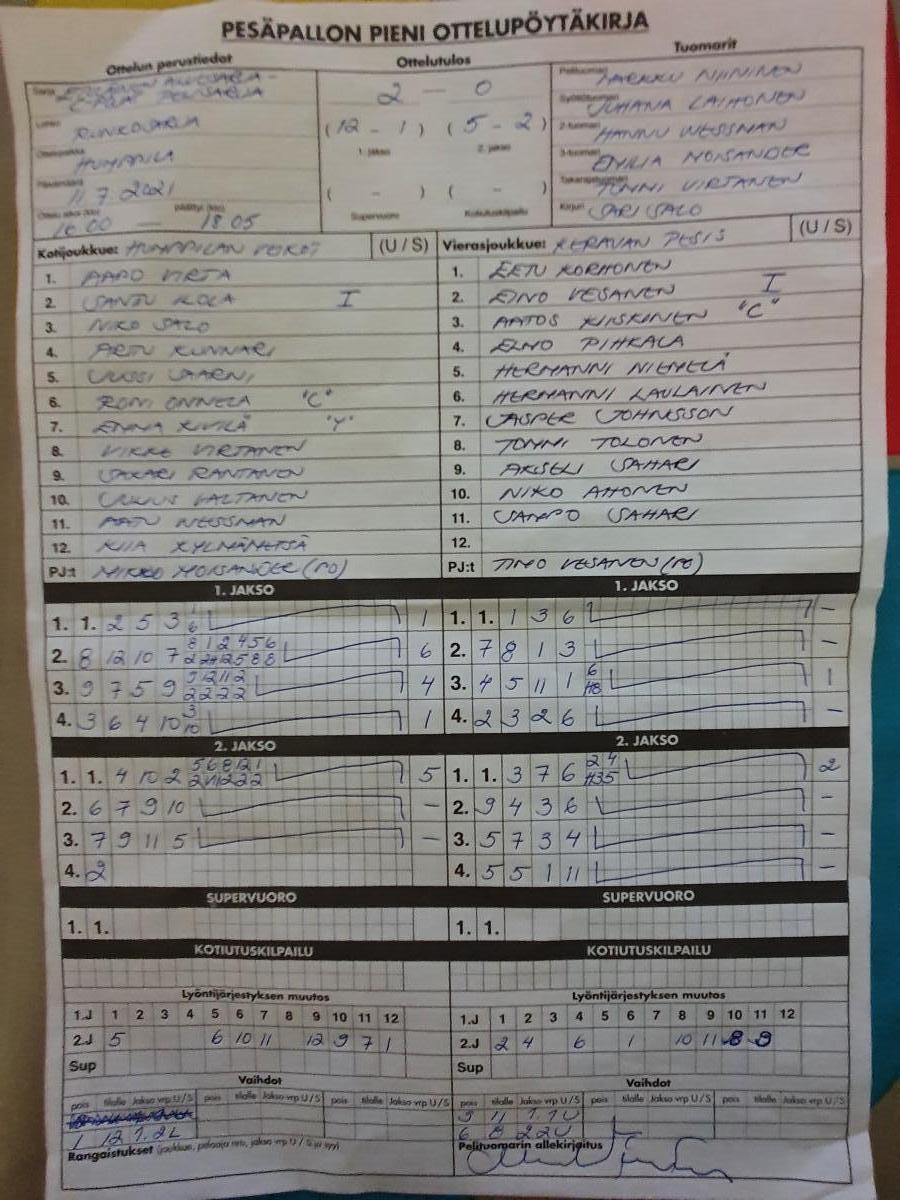 PESÄPALLON PIENI OTTELUPÖYTÄKIRJA
Ottelun perustiedot
Ottelutulos
Tuomarit
2 - 0
(12 - 1) (5 - 2)
1. jakso 2. jakso
( - ) ( - )
Supervuoro Kotiutuskilpailu
RUNKOSARJA
HUMPPILA
11.7.2021
16.00 — 18.05
Pelituomari MARKKU NIININEN
Syöttötuomari JUHANA LAIHONEN
2-tuomari HANNU WESSMAN
3-tuomari EMILIA MOISANDER
Takarajatuomari TOMMI VIRTANEN
Kirjuri SARI SALO
Kotijoukkue: HUMPPILAN VEIKOT (U / S)
1. AAPO VIRTA
2. SANTU KOLA I
3. NIKO SALO
4. ARTU KUNNARI
5. JUSSI SAARNI
6. RONI ONNELA "C"
7. KIVILÄ "Y"
8. VIRTANEN
9. SAKARI RANTANEN
10. JULIUS VALTANEN
11. AATU WESSMAN
12. KIIA KYLMÄMETSÄ
PJ:t MIKKO MOISANDER (PO)
Vierasjoukkue: KERAVAN PESIS (U / S)
1. EETU KORHONEN
2. EINO VESANEN I
3. AATOS KIISKINEN "C"
4. EINO PIHKALA
5. HERMANNI NIEMELÄ
6. HERMANNI LAULAINEN
7. JASPER JOHNSSON
8. TOMMI TOLONEN
9. AKSELI SAHARI
10. NIKO AHONEN
11. SAMPO SAHARI
12.
PJ:t TIMO VESANEN (PO)
1. JAKSO
1. 1. 2 5 3 1
2. 8 12 10 7 6
3. 9 7 5 9 4
4. 3 6 4 10 1
1. JAKSO
1. 1. 1 3 6 -
2. 7 8 1 3 -
3. 4 5 11 1 1
4. 2 3 2 6 -
2. JAKSO
1. 1. 4 10 2 5
2. 6 7 9 10 -
3. 7 9 11 5 -
4. 2
2. JAKSO
1. 1. 3 7 6 2
2. 9 4 3 6 -
3. 5 7 3 4 -
4. 5 5 1 11 -
SUPERVUORO
1. 1.
SUPERVUORO
1. 1.
KOTIUTUSKILPAILU
KOTIUTUSKILPAILU
Lyöntijärjestyksen muutos
1.J 1 2 3 4 5 6 7 8 9 10 11 12
2.J 5 6 10 11 12 9 7 1
Sup
Lyöntijärjestyksen muutos
1.J 1 2 3 4 5 6 7 8 9 10 11 12
2.J 2 4 6 1 10 11 8 9
Sup
Vaihdot
pois tilalle Jakso vrp U / S pois tilalle Jakso vrp U / S pois tilalle Jakso vrp U / S
1 12 1. 2L
Vaihdot
pois tilalle Jakso vrp U / S pois tilalle Jakso vrp U / S pois tilalle Jakso vrp U / S
9 11 1.1U
6 8 2.2U
Rangaistukset (joukkue, pelaaja nro, jakso vrp U / S ja syy)
Pelituomarin allekirjoitus